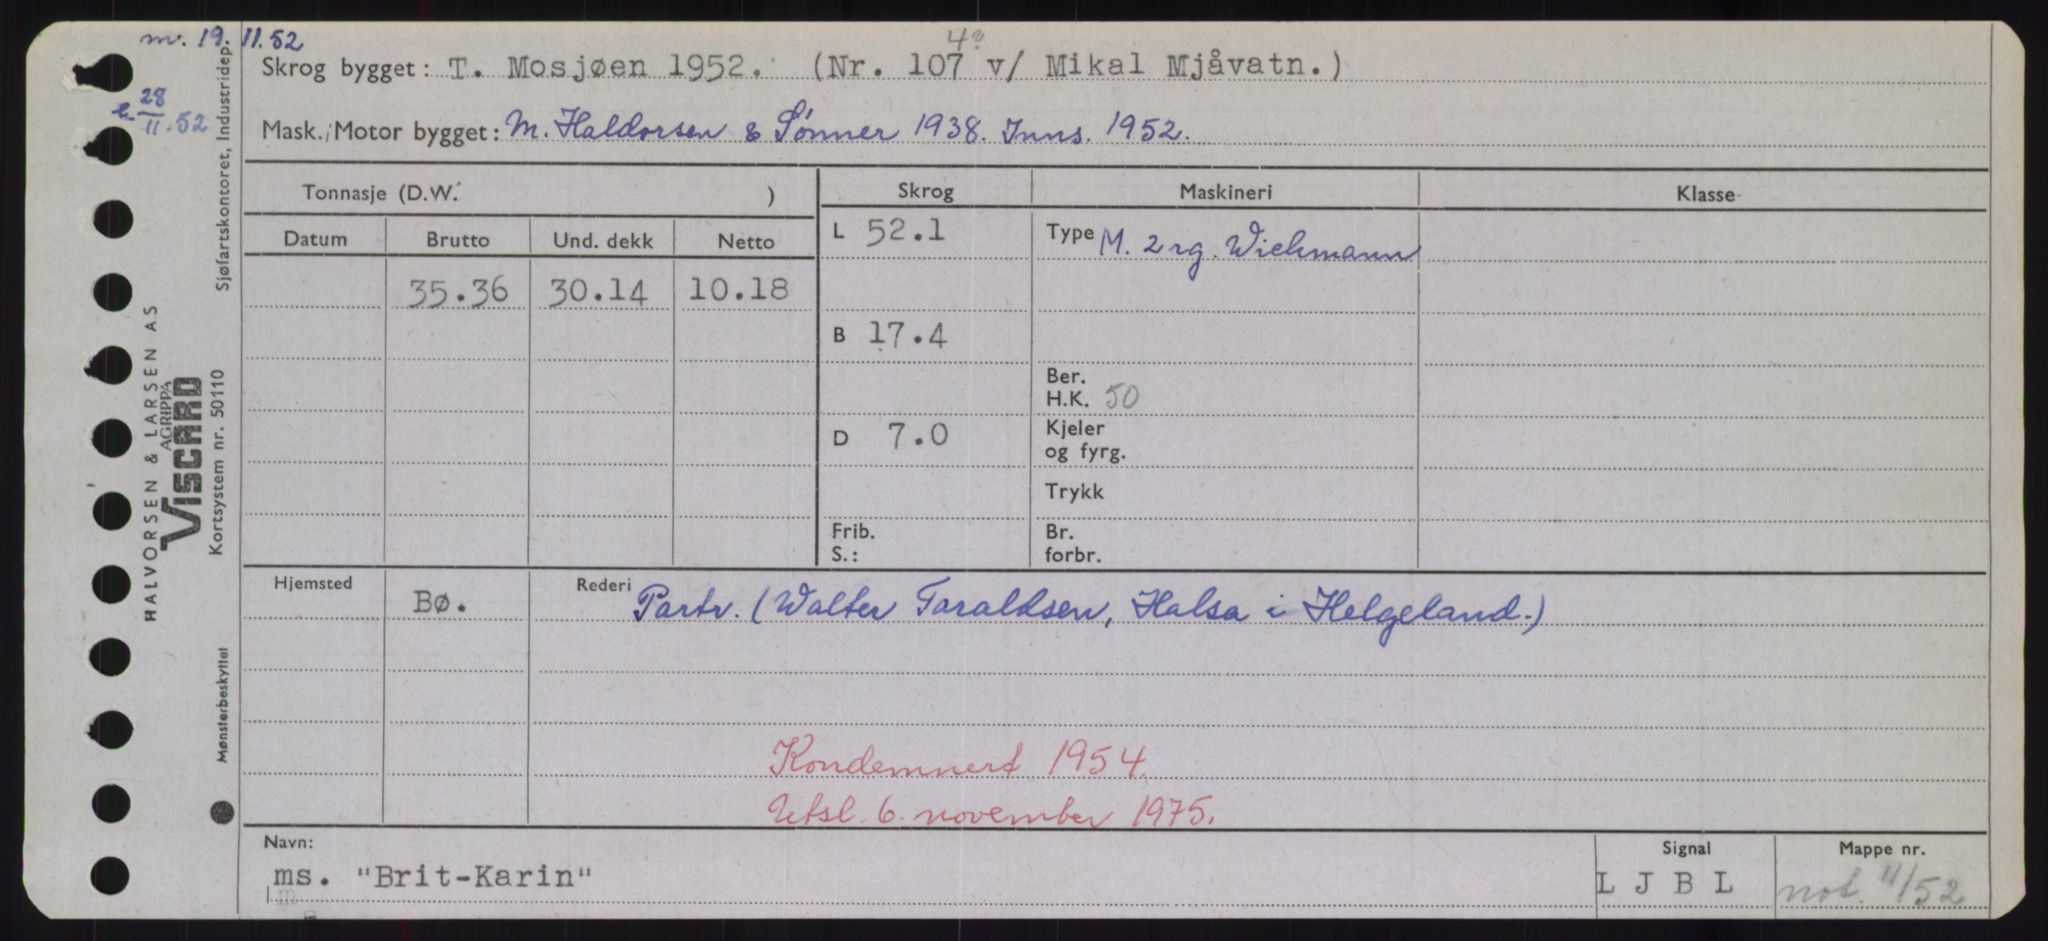 m. 19. 11.52
28
11.52
Skrog bygget: T. Mosjøen 1952. (Nr. 107 v/ Mikal Mjåvatn.)
Mask./Motor bygget: M. Haldorsen & Sønner 1938. Inns. 1952.
Tonnasje (D.W. )
Skrog
Maskineri
Klasse
Datum
Brutto
Und. dekk
Netto
35.36
30.14
10.18
L 52.1
B 17.4
D 7.0
Frib.
S.:
Type M. 2 rg. Wichmann
Ber.
H.K. 50
Kjeler
og fyrg.
Trykk
Br.
forbr.
Hjemsted
Bø.
Rederi Partr. (Walter Taraldsen, Halsa i Helgeland.)
Kondemnert 1954.
Utsl. 6. november 1975.
Navn:
ms. "Brit-Karin"
Signal
L J B L
Mappe nr.
not. 11/52
Sjøfartskontoret, Industridep.
HALVORSEN & LARSEN A.S
AGRIPPA
VISCARD
Kortsystem nr. 50110
Mønsterbeskyttet